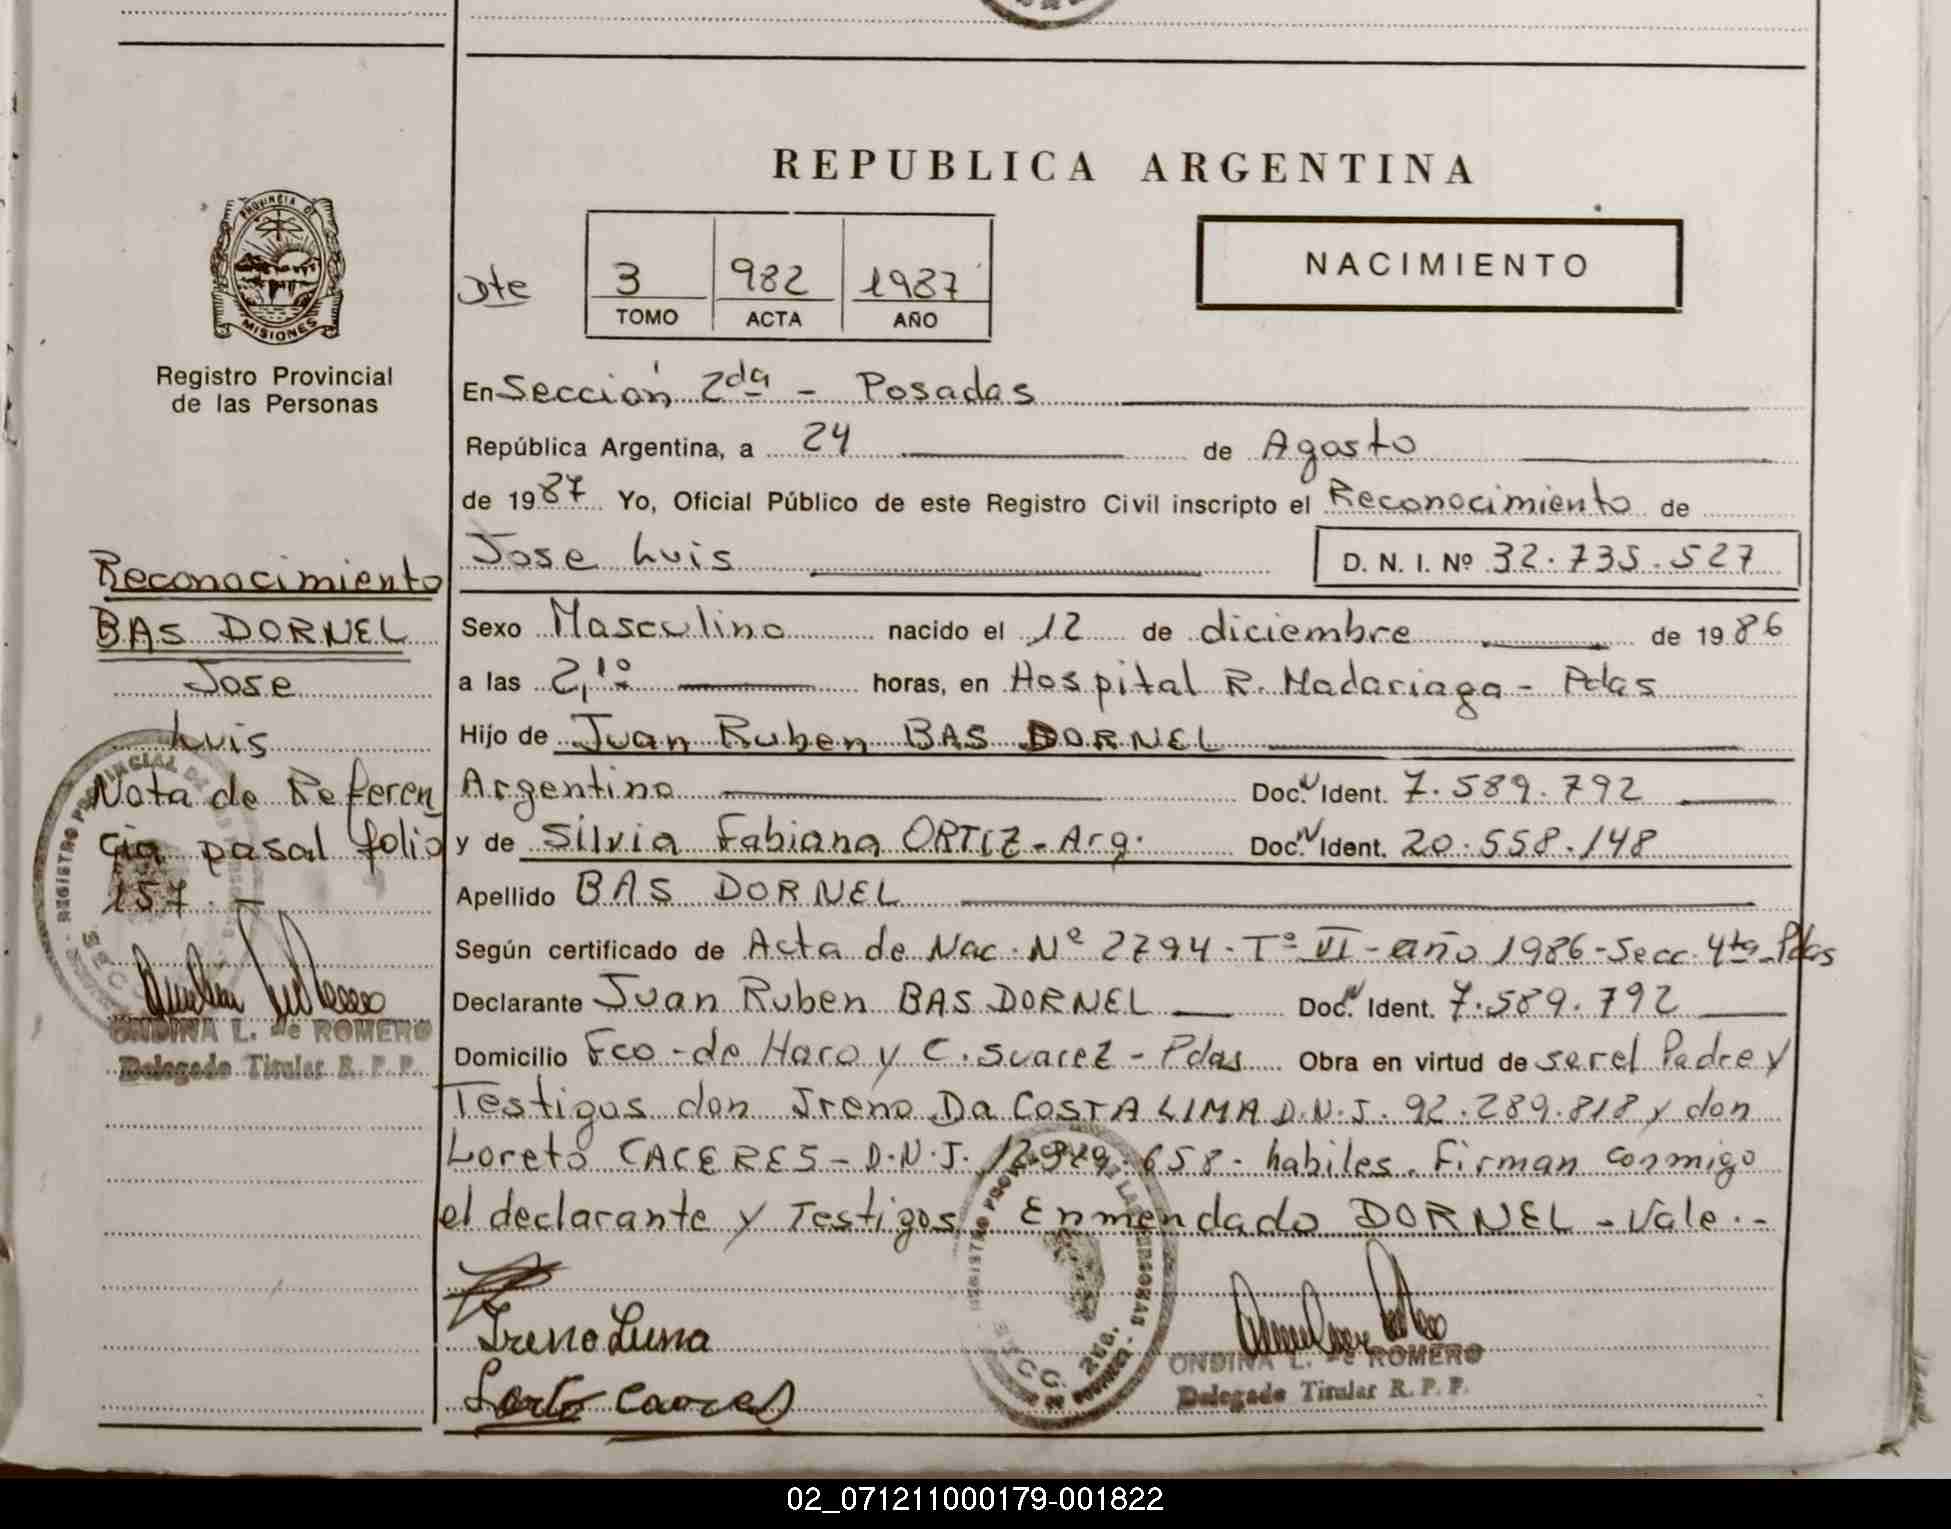 REPUBLICA ARGENTINA
PROVINCIA DE
MISIONES
Registro Provincial
de las Personas
Dte
3 982 1987
TOMO ACTA AÑO
NACIMIENTO
En Sección 2da - Posadas
República Argentina, a 24 de Agosto
de 1987 Yo, Oficial Público de este Registro Civil inscripto el Reconocimiento de
Jose Luis D. N. I. Nº 32.735.527
Reconocimiento
BAS DORNEL
Jose
Luis
Nota de Referen
cia pasa al folio
157.-
ONDINA L. de ROMERO
Delegado Titular R. P. P.
Sexo Masculino nacido el 12 de diciembre de 1986
a las 2,10 horas, en Hospital R. Madariaga - Pdas
Hijo de Juan Ruben BAS DORNEL
Argentino Doc. N Ident. 7.589.792
y de Silvia Fabiana ORTIZ - Arg. Doc. N Ident. 20.558.148
Apellido BAS DORNEL
Según certificado de Acta de Nac. Nº 2794 - Tº VI - año 1986 - Secc. 4ta - Pdas
Declarante Juan Ruben BAS DORNEL Doc. N Ident. 7.589.792
Domicilio Fco - de Haro y C. Suarez - Pdas Obra en virtud de ser el Padre y
Testigos don Ireno DA COSTA LIMA D.N.I. 92.289.818 y don
Loreto CACERES - D.N.I. 658 - habiles. Firman conmigo
el declarante y Testigos Enmendado DORNEL - Vale.-
Ireno Luna
Caceres
ONDINA L. de ROMERO
Delegado Titular R. P. P.
02_071211000179-001822